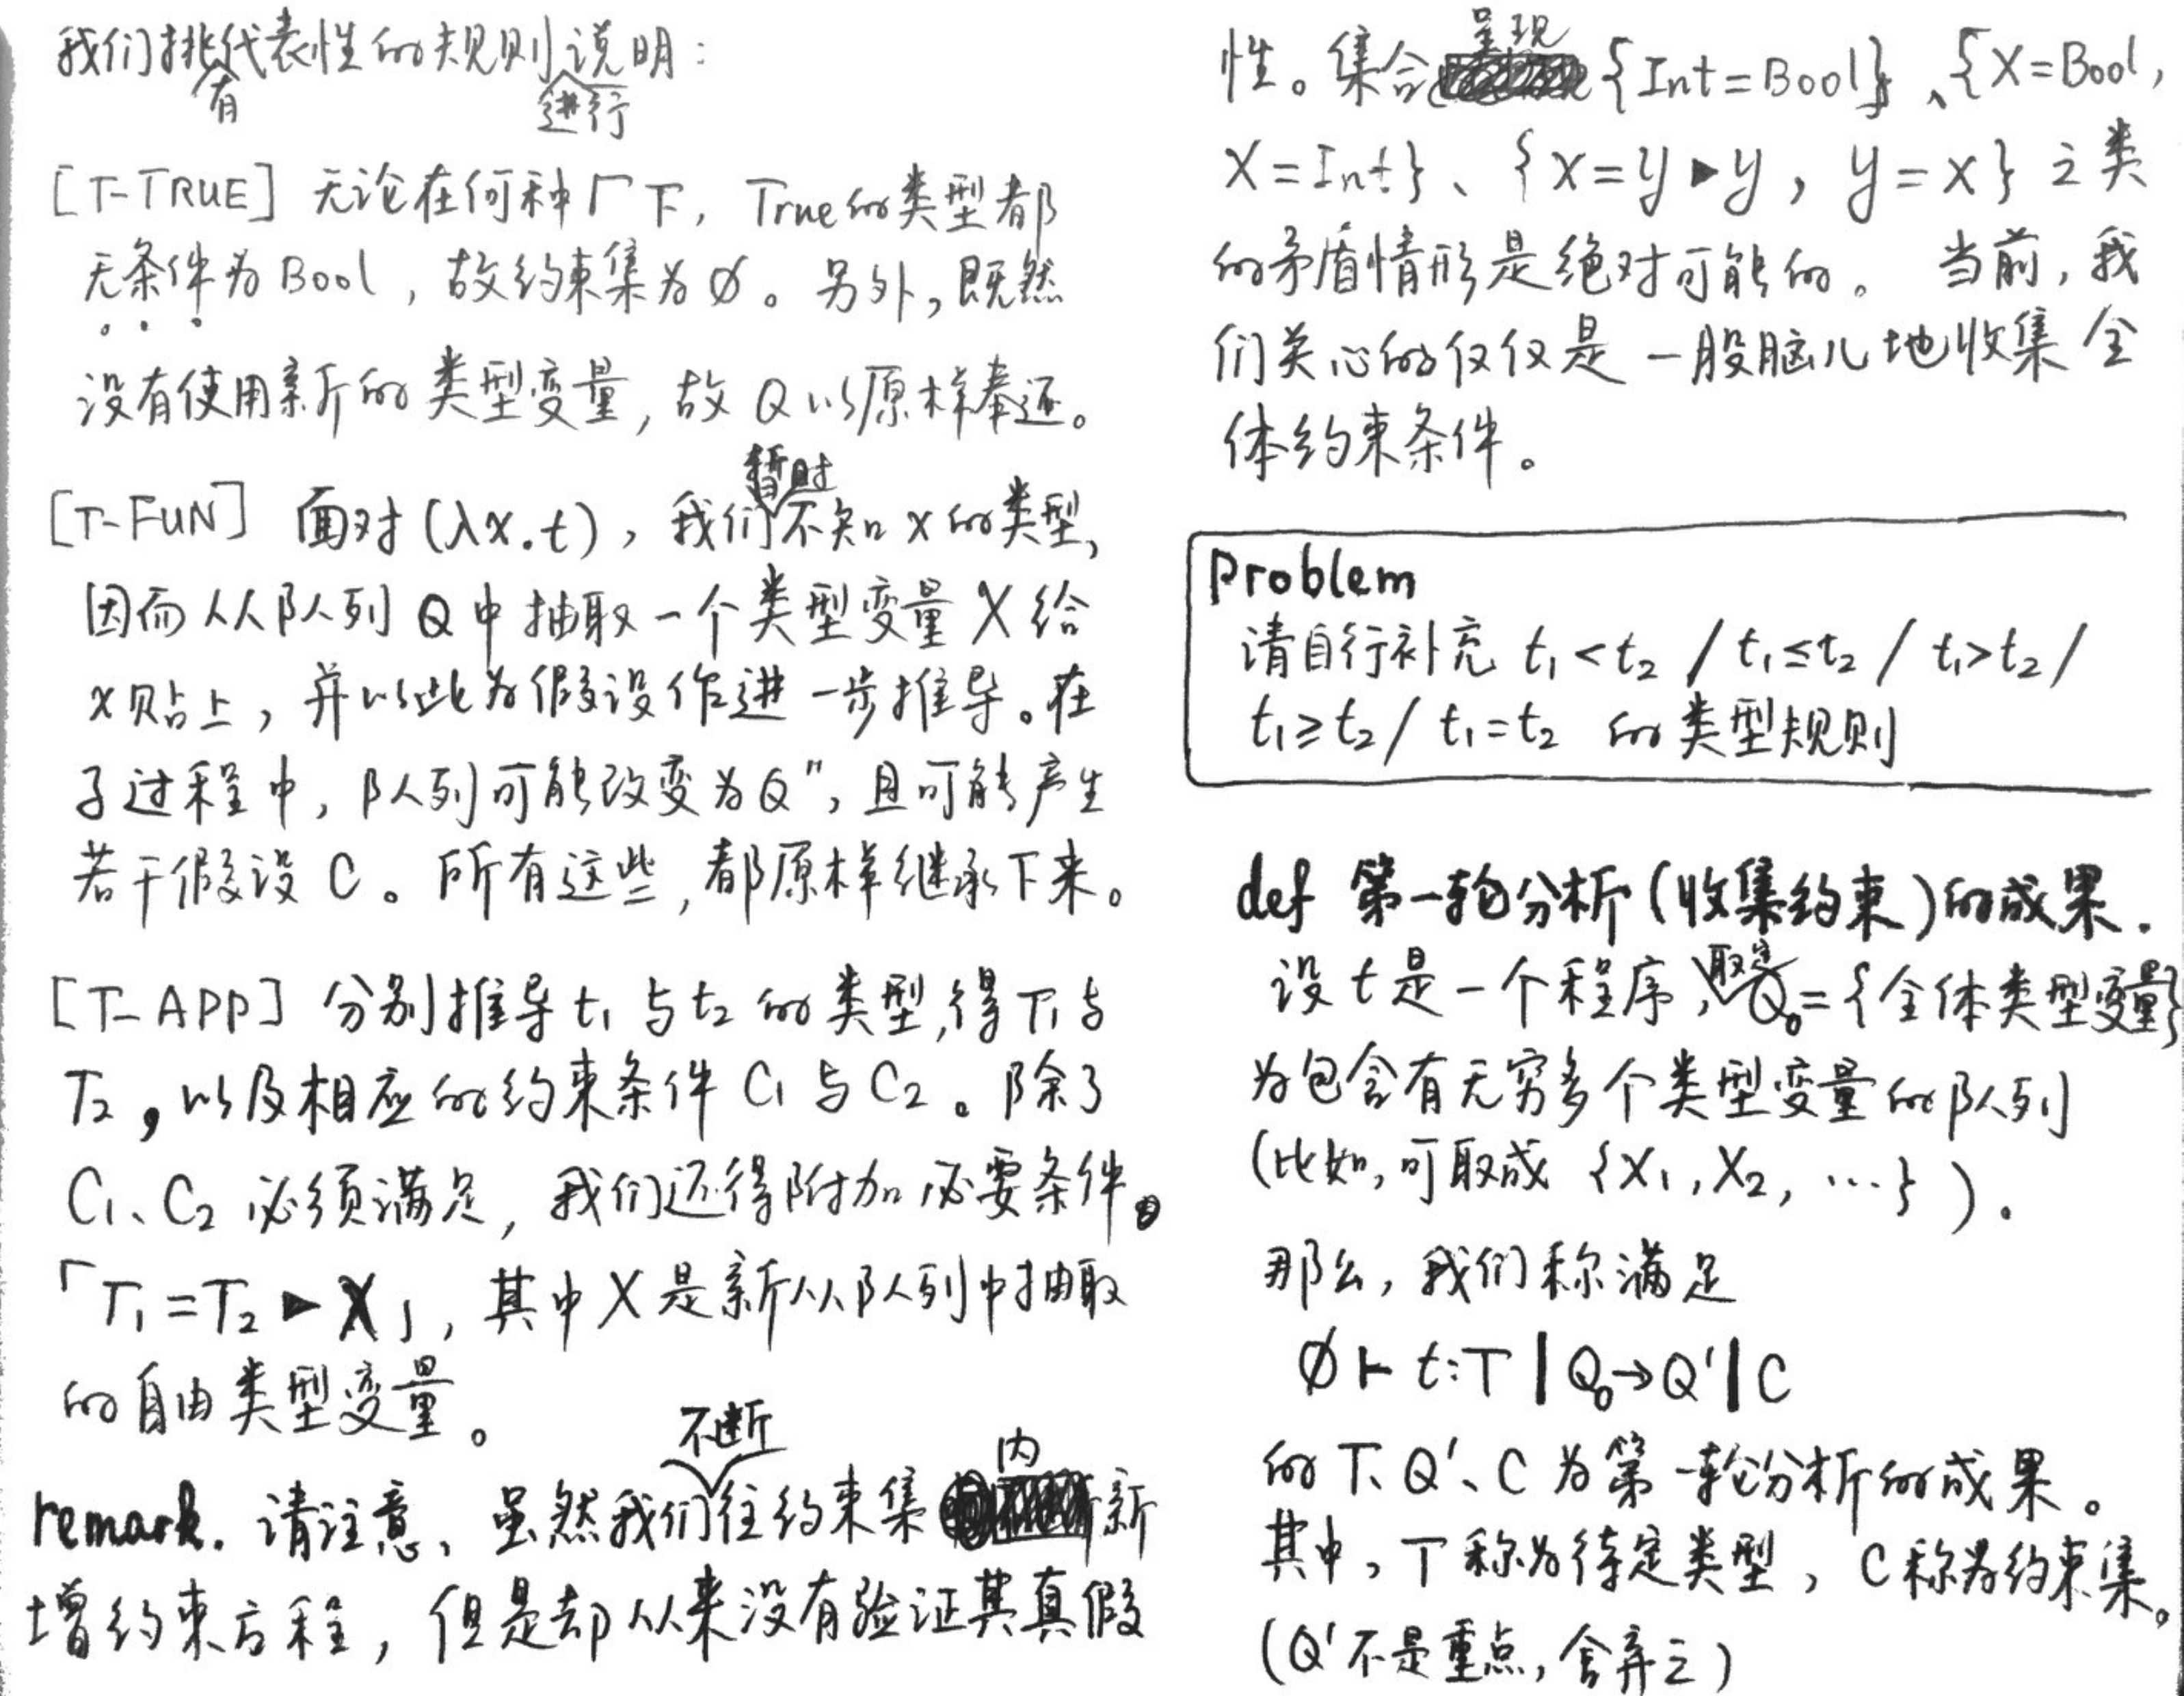 我们挑有代表性的规则进行说明：
[T-TRUE] 无论在何种 Γ 下，True的类型都
无条件为 Bool，故约束集为 ∅。另外，既然
没有使用新的类型变量，故 Q 以原样奉还。
[T-FUN] 面对 (λx.t)，我们暂时不知 x 的类型，
因而从队列 Q 中抽取一个类型变量 X 给
x 贴上，并以此为假设作进一步推导。在
子过程中，队列可能改变为Q''，且可能产生
若干假设 C。所有这些，都原样继承下来。
[T-APP] 分别推导 t₁ 与 t₂ 的类型，得 T₁ 与
T₂，以及相应的约束条件 C₁ 与 C₂。除了
C₁、C₂ 必须满足，我们还得附加必要条件。
「T₁ = T₂ ▶ X」，其中 X 是新从队列中抽取
的自由类型变量。
remark. 请注意、虽然我们不断往约束集内新
增约束方程，但是却从来没有验证其真假
性。集合呈现 {Int=Bool}、{X=Bool,
X=Int}、{x=y▶y, y=x} 之类
的矛盾情形是绝对可能的。当前，我
们关心的仅仅是一股脑儿地收集全
体约束条件。
Problem
请自行补充 t₁<t₂ / t₁≤t₂ / t₁>t₂ /
t₁≥t₂ / t₁=t₂ 的类型规则
def 第一轮分析(收集约束)的成果.
设 t 是一个程序，取定Q₀={全体类型变量}
为包含有无穷多个类型变量的队列
(比如，可取成 {X₁, X₂, …})。
那么，我们称满足
∅ ⊢ t:T | Q₀→Q' | C
的 T、Q'、C 为第一轮分析的成果。
其中，T 称为待定类型，C 称为约束集。
(Q' 不是重点，舍弃之)